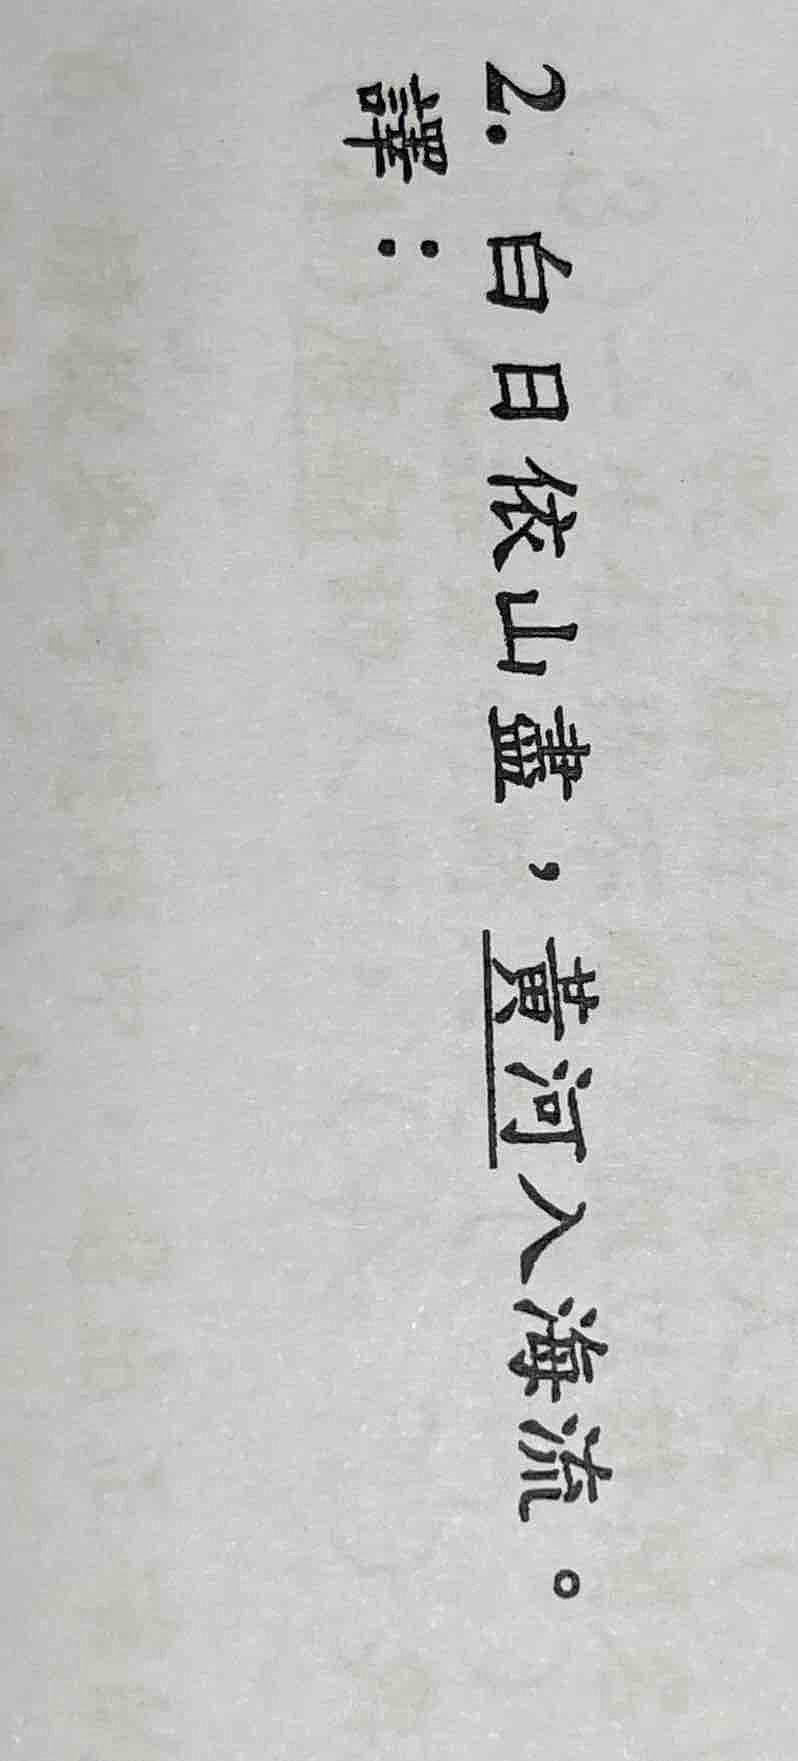 2. 白日依山盡，黃河入海流。
譯：